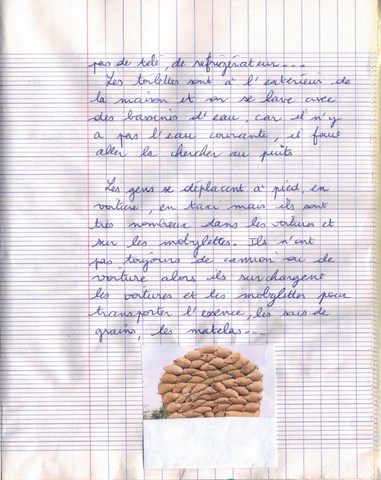 pas de télé, de réfrigérateur...
Les toilettes sont à l'extérieur de
la maison et on se lave avec
des bassines d'eau, car il n'y
a pas l'eau courante, il faut
aller la chercher au puits.
Les gens se déplacent à pied, en
voiture, en taxi mais ils sont
très nombreux dans les voitures et
sur les mobylettes. Ils n'ont
pas toujours de camion ou de
voiture alors ils surchargent
les voitures et les mobylettes pour
transporter l'essence, les sacs de
grains, les matelas...